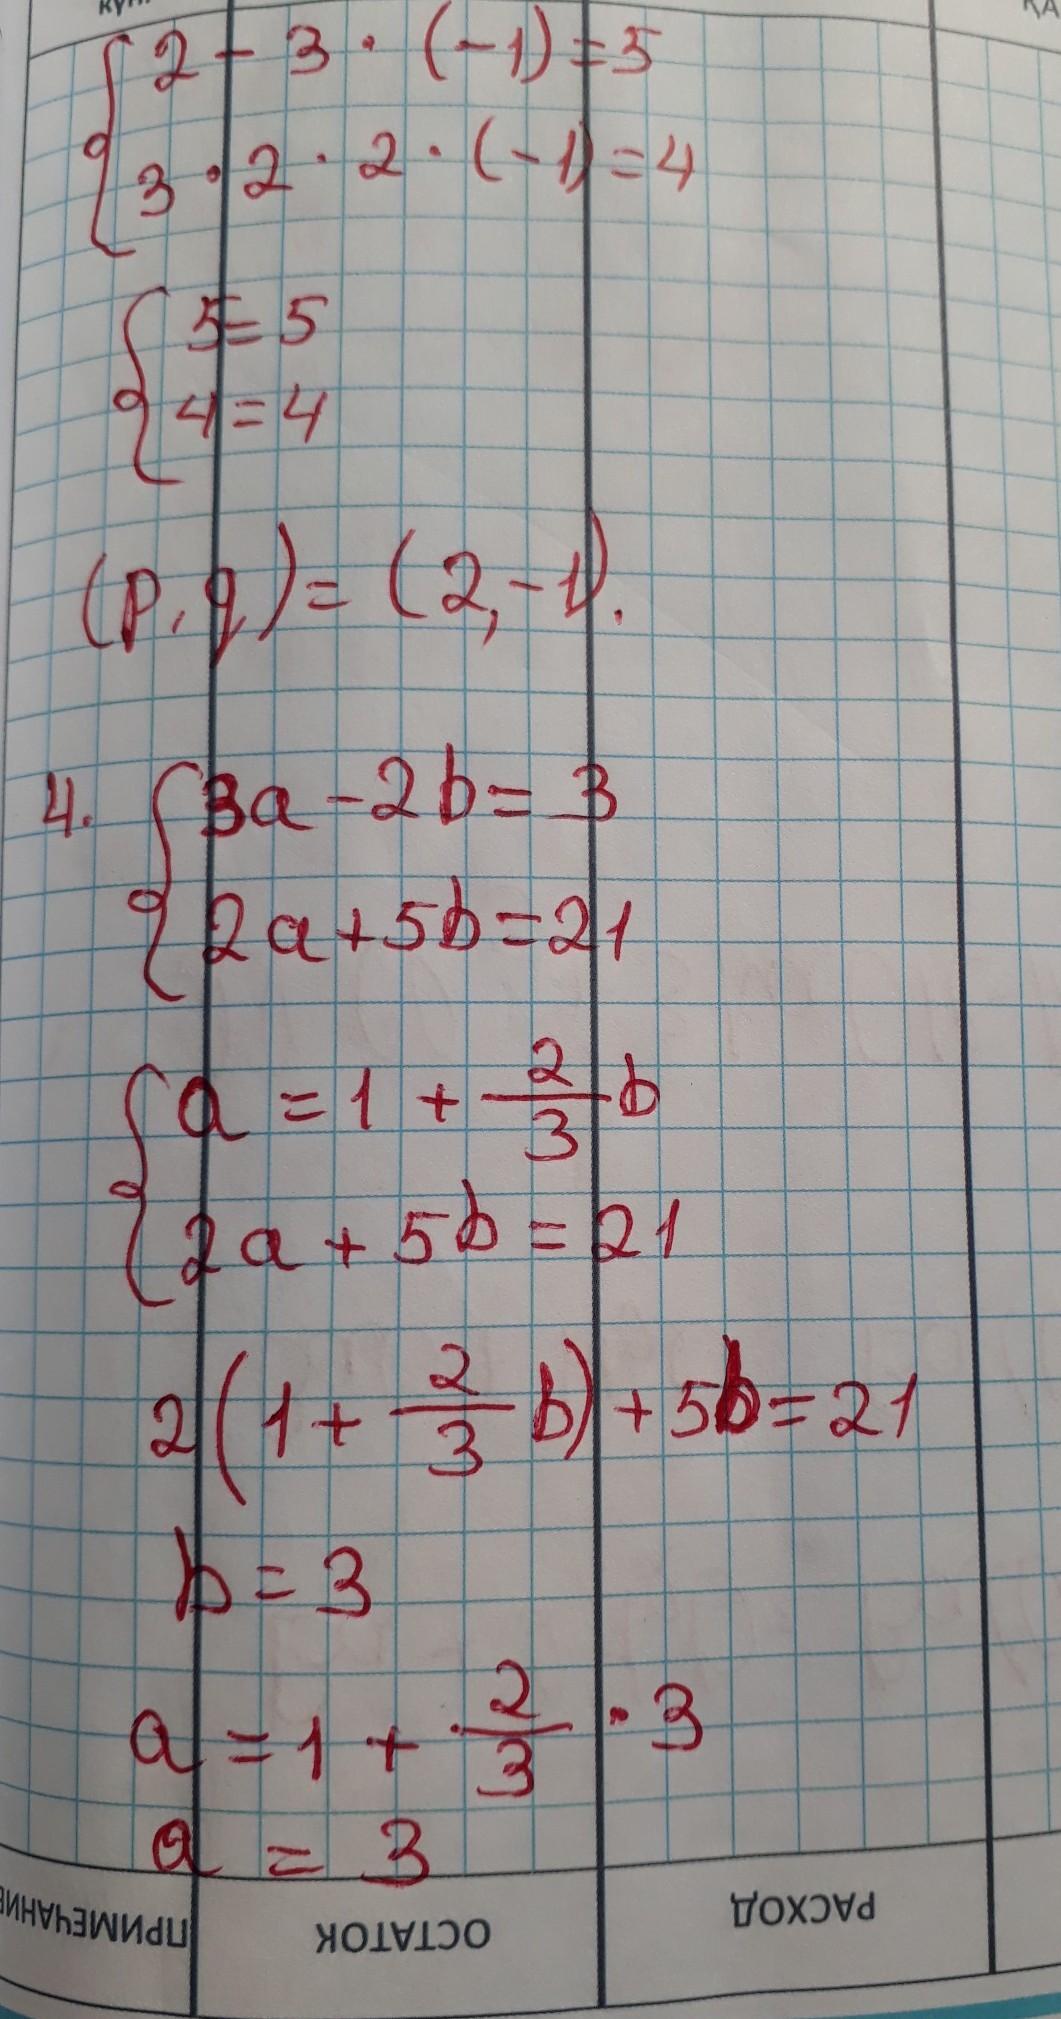 2 - 3 · (-1) = 5
3 · 2 · 2 · (-1) = 4
5 = 5
4 = 4
(p, q) = (2, -1).
4. 3a - 2b = 3
2a + 5b = 21
a = 1 + 2/3 b
2a + 5b = 21
2(1 + 2/3 b) + 5b = 21
b = 3
a = 1 + 2/3 · 3
a = 3
ПРИМЕЧАНИЕ ОСТАТОК РАСХОД